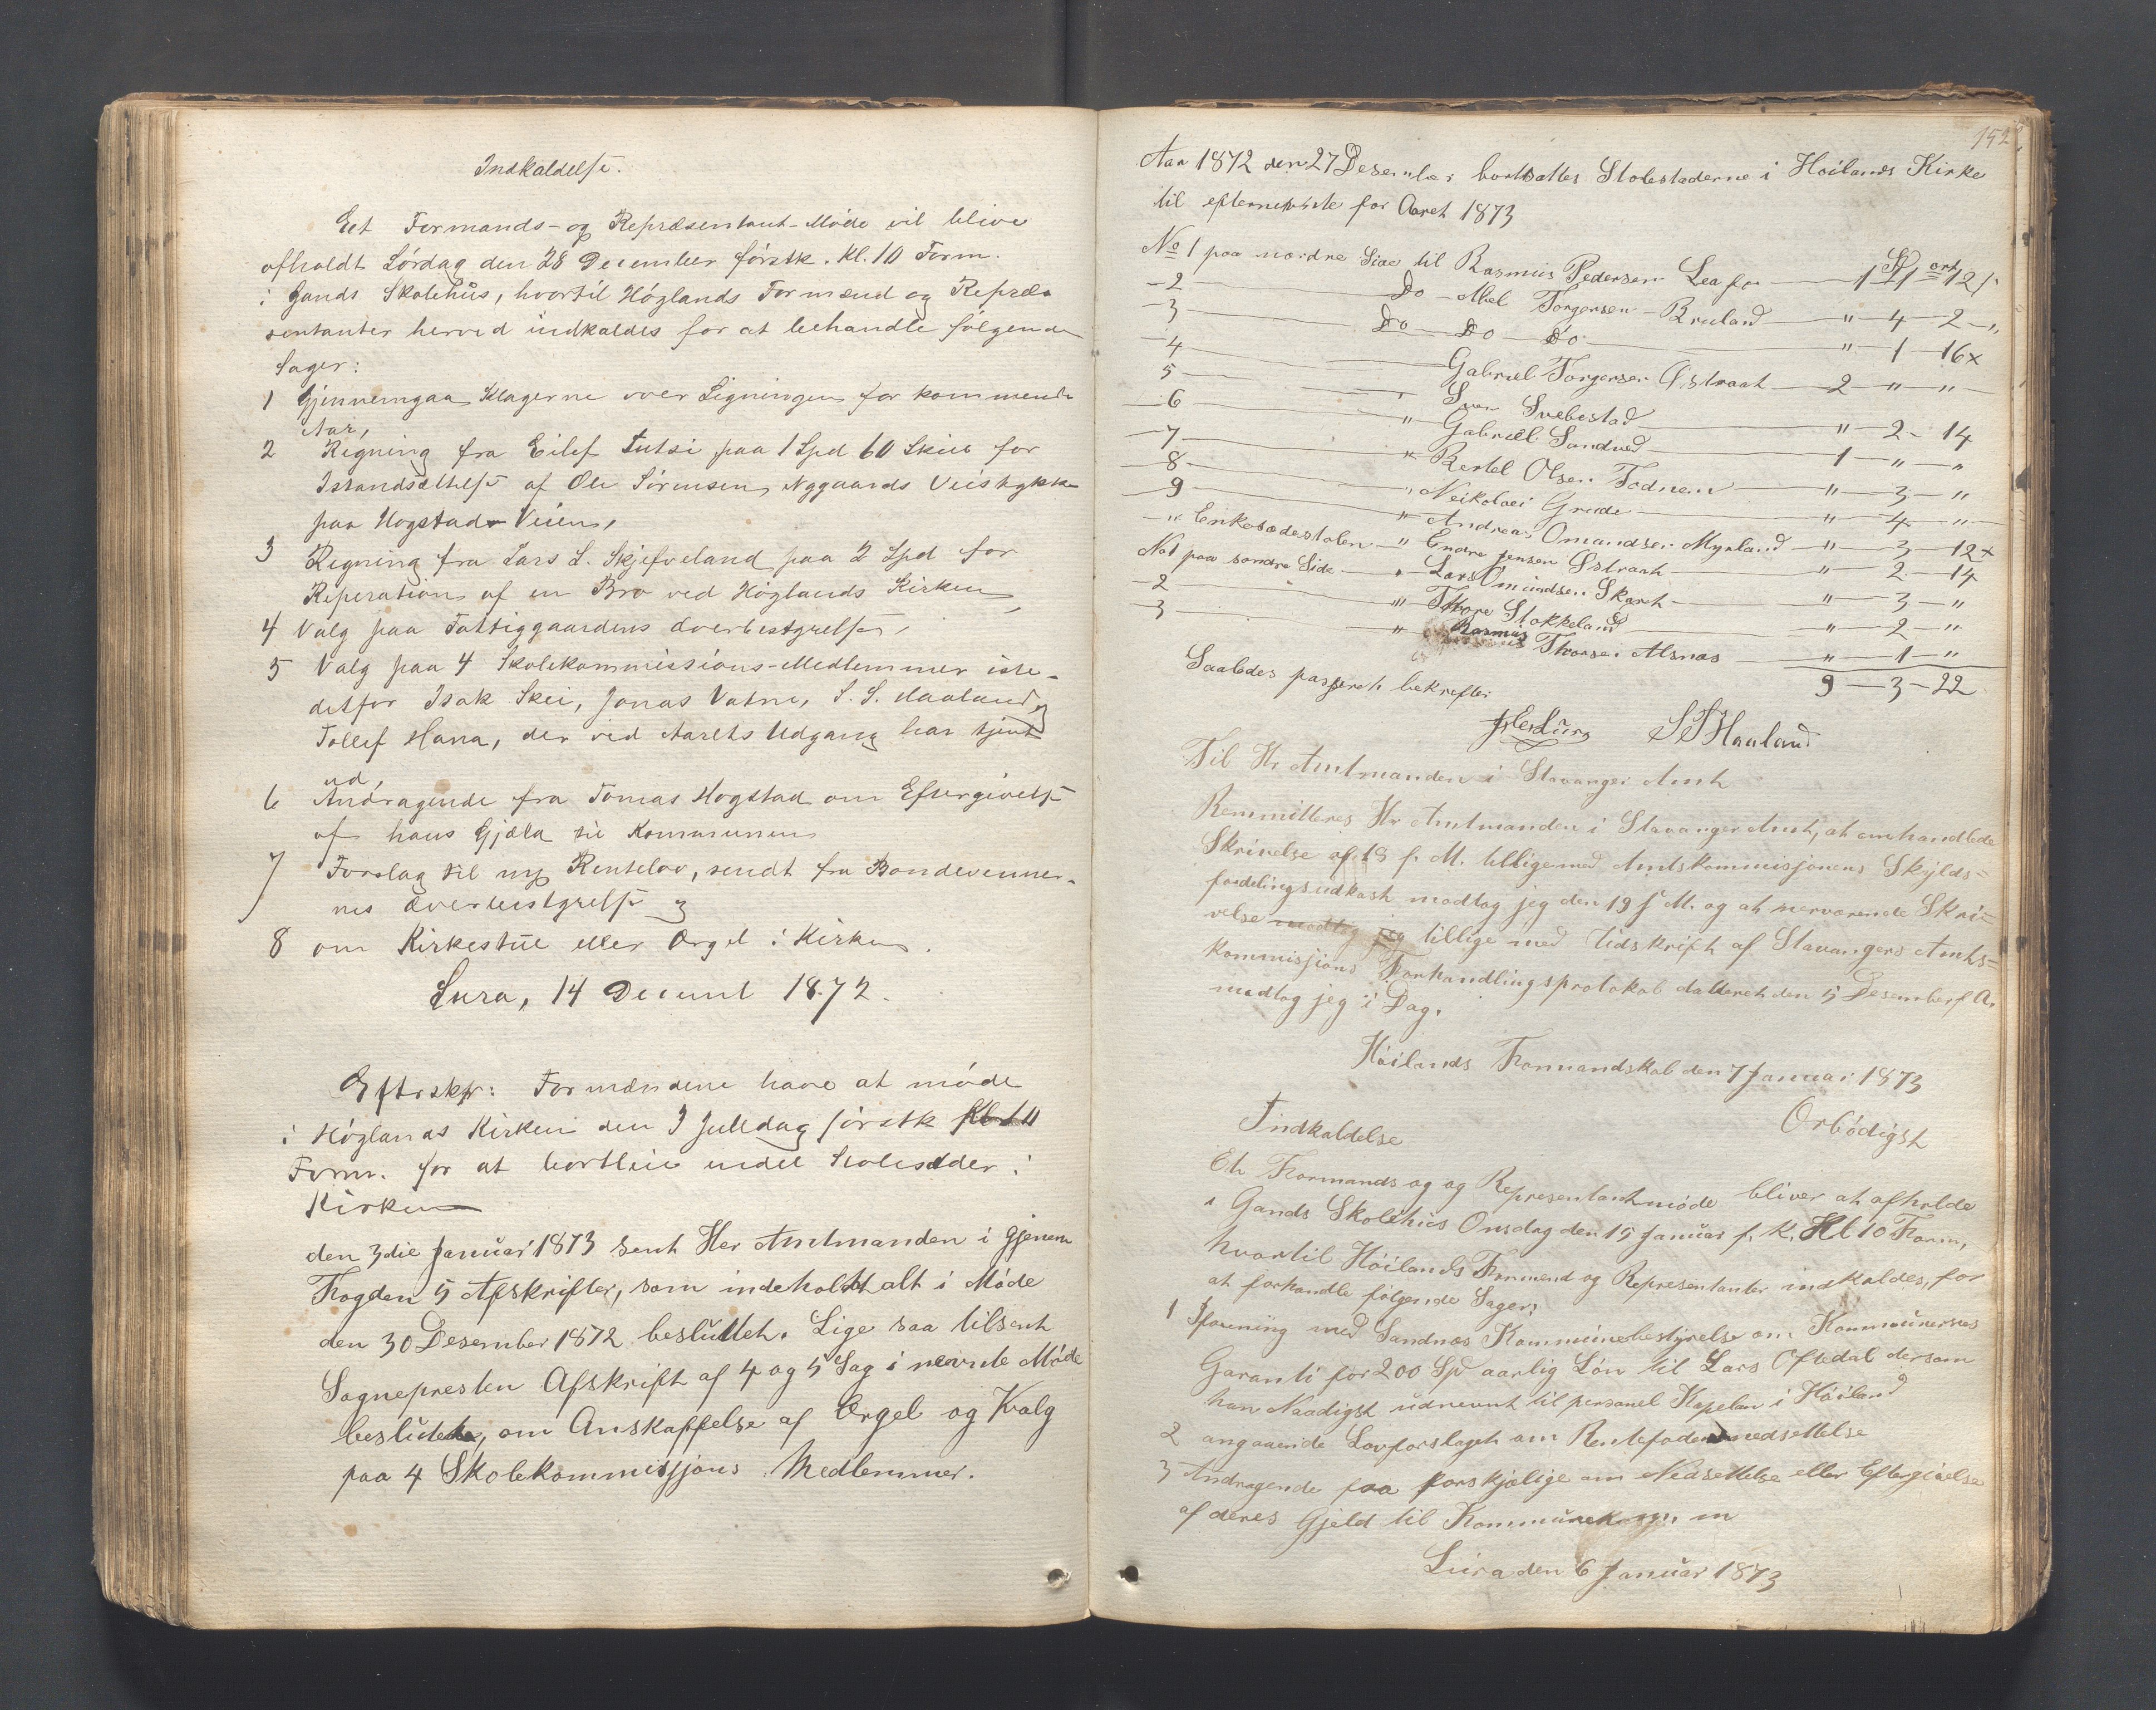 Indkaldelse.
Eet Formands- og Repræsentant-Møde vil blive
afholdt Lørdag den 28 December førstk. Kl. 10 Form.
i Gands Skolehus, hvortil Høglands Formænd og Repræ-
sentanter herved indkaldes for at behandle følgende
Sager:
1 Gjennemgaa Klagerne over Ligningen for kommende
Aar,
2 Regning fra Eilef Lutsi paa 1 Spd 60 Skill for
Istandsættelse af Ole Sørensen Nygaards Veistykke
paa Hogstads Veien,
3 Regning fra Lars L. Skjefveland paa 2 Spd for
Reperation af en Bro ved Høglands Kirken,
4 Valg paa Fattiggaardens Overbestyrelse,
5 Valg paa 4 Skolekommissions-Medlemmer iste-
detfor Isak Skei, Jonas Vatne, S. S. Haaland og
Tollef Hana, der ved Aarets Udgang har tjent
ud,
6 Andragende fra Tomas Hogstad om Eftergivelse
af hans Gjæld til Kommunen
7 Forslag til ny Rentelov, sendt fra Bondevenner-
nes Overbestyrelse og
8 om Kirkestue eller Orgel i Kirken.
Lura, 14 Decembr 1872.
Efterskr: Formændene have at møde
i Høglands Kirken den 3 Juledag førstk Kl 10
Form. for at bortleie endel Stolesæder i
Kirken
den 3die Januar 1873 sent Her Amtmanden i gjenem
Fogden 5 Afskrifter, som indeholdt alt i Møde
den 30 Desember 1872 besluttet. Lige saa tilsent
Sognepresten Afskrift af 4 og 5 Sag i nevnte Møde
besluttet, om Anskaffelse af Orgel og Valg
paa 4 Skolekommissjons Medlemmer.
152
Aar 1872 den 27 Desember bortsattes Stolestaderne i Høilands Kirke
til efternevnte for Aaret 1873
No 1 paa nordre Side til Rasmus Pedersen Lea for 1 Sp 1 ort 12 s
-2 Do - Abel Torgersen Bruland " 4 - 2 - "
3 Do Do Do " 1 - 16 x
-4 Gabriel Torgersen Østraat 2 " "
5 " Sven Svebestad " 2 - 14
6 " Gabriel Sandved 1 " "
-7 " Bertel Olsen Todnem " 3 "
8 " Neikolaei Grude " 4 "
9 " Andreas Omundsen Myrland " 3 - 12 x
" Enkesædestolen " Endre Jensen Østraat " 2 - 14
No 1 paa søndre Side " Lars Omundsen Skaret " 3 "
-2 " Thore Stokkeland " 2 "
3 " Rasmus Thorsen Alsnas " 1 "
9 - 3 - 22
Saaledes passeret bekrefter
S S Haaland
Til Hr Amtmanden i Stavanger Amt
Remmitteres Hr Amtmanden i Stavanger Amt, at omhandlede
Skrivelse af 18 f. M. tilligemed Amtskommissjonens Skylds-
fordelingsudkast modtog jeg den 19 f M. og at nerværende Skri-
velse modtog jeg tillige med Udskrift af Stavangers Amts-
kommisjions Forhandlingsprotokol datteret den 5 Desember f A.
modtog jeg i Dag.
Høilands Formandskab den 7 Januar 1873
Ørbødigst
Indkaldelse
Et Formands og og Representantmøde bliver at afholde
i Gands Skolehus Onsdag den 15 Januar f. K. Kl 10 Form,
hvortil Høilands Formend og Representanter indkaldes, for
at forhandle følgende Sager:
1 Forening med Sandnæs Kommunebestyrelse om Kommunernes
Garanti for 200 Sp aarlig Løn til Lars Oftedal dersom
han Naadigst udnevnt til personel Kapelan i Høiland
2 angaaende Lovforslaget om Rentefodens nedsettelse
3 Andragende fra forskjelige om Nedsettelse eller Eftergivelse
af deres Gjeld til Kommunekassen
Lura den 6 Januar 1873